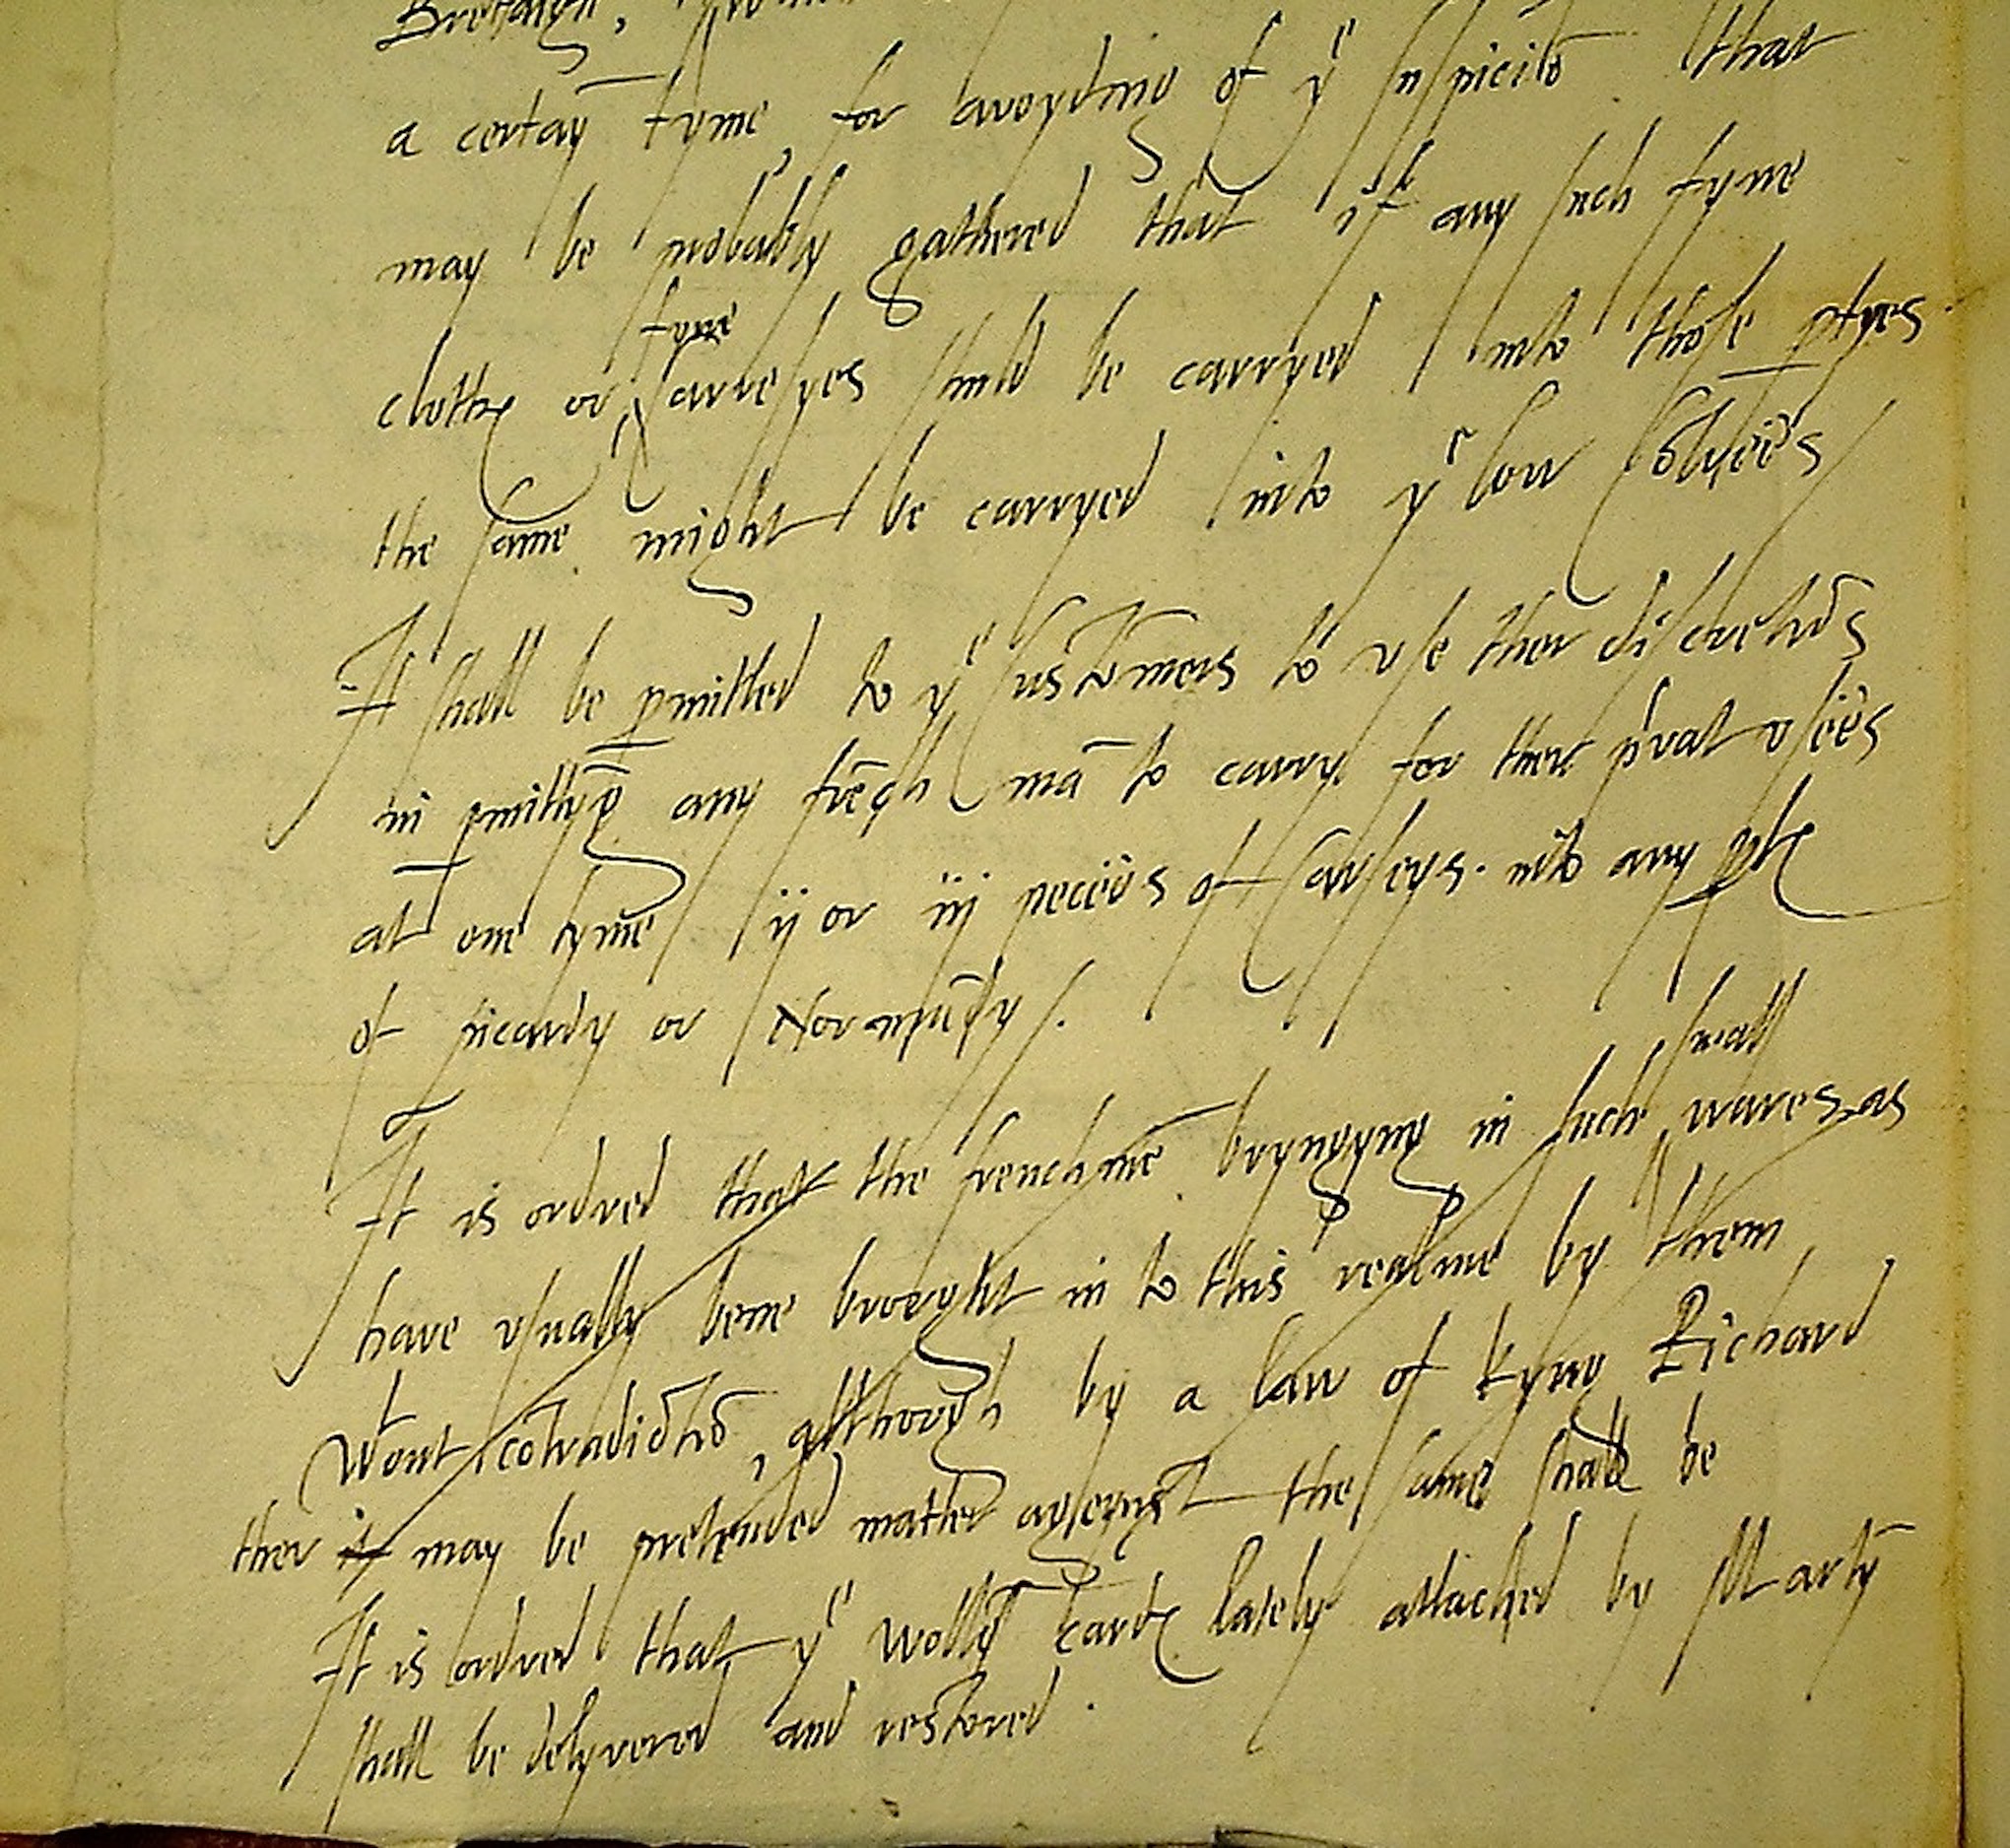 Bretaign,
a certaȳ tyme, for avoydīg of yᵉ suspiciō that
may be probably gathered that if any such fyne
cloths or ^fyne^ carseyes shuld be carryed into those ptyes
the same might be carryed into yᵉ low Cōtrees
It shall be pmitted to yᵉ Customers to vse ther discretiōs
in pmittyg any frēch mā to carry for ther pʳvat vsees
at one tyme ij or iij pecees of Carseys. into any pts
of picardy or Normādy /.
It is ordred that the frenchmē bryngyng in such ^small^ wares as
have vsually bene browght in to this realme by them
wᵗowt cōtradictiō, although by a law of kyng Richard
ther it may be pretended matter ageynst the same shall be
It is ordred that yᵉ wollȳ cards lately attached by Martȳ
shall be delyvered and restored.